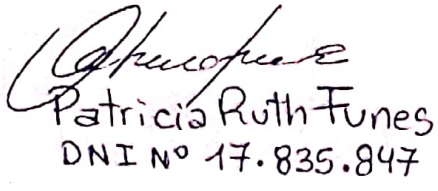 Patricia Ruth Funes
DNI Nº 17.835.847